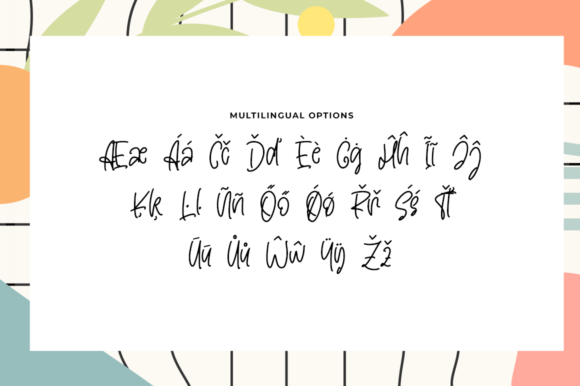 MULTILINGUAL OPTIONS
Ææ Áá Čč Ďď Èè Ġġ Ĥĥ Ĩĩ Ĵĵ
Ķķ Ŀŀ Ññ Őő Ǿǿ Řř Śś
Ūū Ůů Ŵŵ Ÿÿ Žž